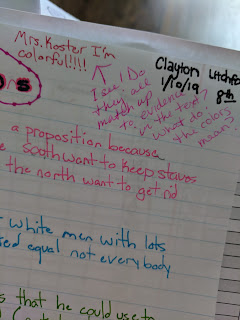 Mrs. Koster I'm
colorful!!!!
Clayton Litchfo
1/10/19
8th
↑ I Do
I see.
they all
match up
to evidence
in the text?
What do
the colors
mean?
ons
a proposition because
South want to keep slaves
the north want to get rid
white men with lots
sed equal not everybody
s that he could use to